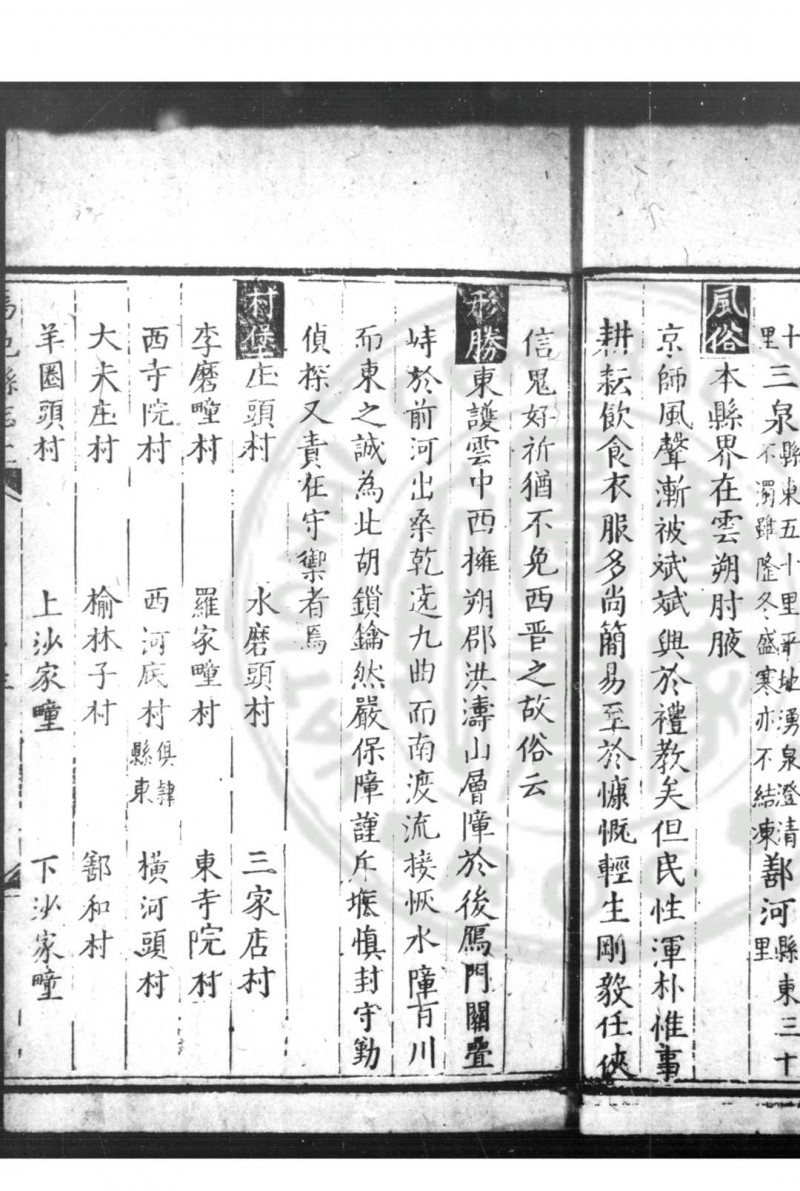 十里三泉縣東五十里平地湧泉澄清不濁雖隆冬盛寒亦不結凍鄯河縣東三十里
風俗本縣界在雲朔肘腋
京師風聲漸被斌斌興於禮教矣但民性渾朴惟事
耕耘飲食衣服多尚簡易至於慷慨輕生剛毅任俠
信鬼好祈猶不免西晋之故俗云
形勝東護雲中西擁朔郡洪濤山層障於後鴈門關疊
峙於前河出桑乾遶九曲而南渡流接恢水障百川
而東之誠為此胡鎖鑰然嚴保障謹斥堠慎封守勤
偵探又責在守禦者焉
村堡庄頭村 水磨頭村 三家店村
李磨疃村 羅家疃村 東寺院村
西寺院村 西河底村俱隸縣東 橫河頭村
大夫庄村 榆林子村 鄯和村
羊圈頭村 上沙家疃 下沙家疃
馬邑縣志上